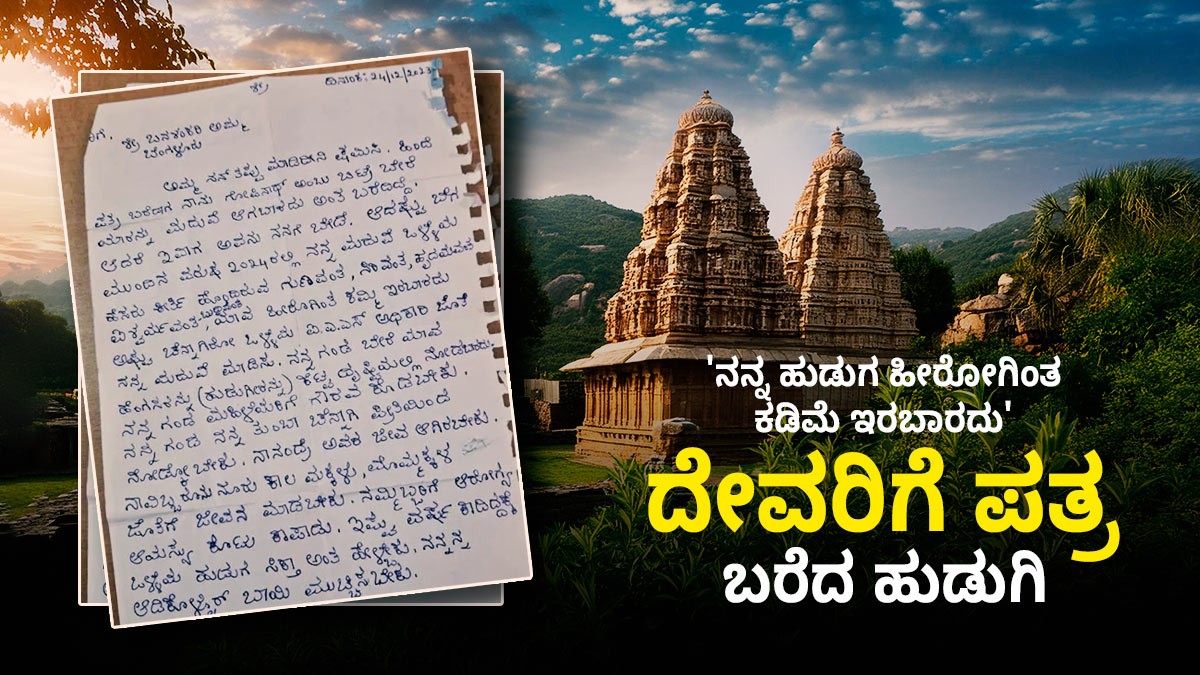 ಶ್ರೀ
ದಿನಾಂಕ: 24/12/2023
ಶ್ರೀ ಬನಶಂಕರಿ ಅಮ್ಮ
ಬೆಂಗಳೂರು
ಅಮ್ಮ ನನ್ ತಪ್ಪು ಮಾಡಿದೀನಿ ಕ್ಷಮಿಸಿ. ಹಿಂದೆ
ಪತ್ರ ಬರೆದಾಗ ನಾನು ಗೋಪಿನಾಥ್ ಅಂಬು ಬಿಟ್ರೆ ಬೇರೆ
ಯಾರನ್ನು ಮದುವೆ ಆಗಬಾರದು ಅಂತ ಬರೆದಿದ್ದೆ
ಆದರೆ ಇವಾಗ ಅವನು ನನಗೆ ಬೇಡ. ಆದಷ್ಟು ಬೇಗ
ಮುಂದಿನ ವರುಷ 2024ರಲ್ಲಿ ನನ್ನ ಮದುವೆ ಒಳ್ಳೆಯ
ಹೆಸರು ಕೀರ್ತಿ ಹೊಂದಿರುವ ಗುಣವಂತ, ಹೃದಯವಂತ
ಯಾವ ಹೀರೋಗಿಂತ ಕಮ್ಮಿ ಇರಬಾರದು
ಅಷ್ಟು ಚೆನ್ನಾಗಿರೋ ಒಳ್ಳೆಯ ಐ.ಎ.ಎಸ್ ಅಧಿಕಾರಿ ಜೊತೆ
ನನ್ನ ಮದುವೆ ಮಾಡಿಸು. ನನ್ನ ಗಂಡ ಬೇರೆ ಯಾವ
ಹೆಂಗಸರನ್ನು (ಹುಡುಗಿರನ್ನು) ಕೆಟ್ಟ ದೃಷ್ಟಿಯಲ್ಲಿ ನೋಡಬಾರದು.
ನನ್ನ ಗಂಡ ಮಹಿಳೆಯರಿಗೆ ಗೌರವ ಕೊಡಬೇಕು.
ನನ್ನ ಗಂಡ ನನ್ನ ತುಂಬಾ ಚೆನ್ನಾಗಿ ಪ್ರೀತಿಯಿಂದ
ನೋಡ್ಕೋಬೇಕು. ನಾನಂದ್ರೆ ಅವರ ಜೀವ ಆಗಿರಬೇಕು
ನಾವಿಬ್ಬರೂ ನೂರು ಕಾಲ ಮಕ್ಕಳು, ಮೊಮ್ಮಕ್ಕಳ
ಜೊತೆಗೆ ಜೀವನ ಮಾಡಬೇಕು. ನಮ್ಮಿಬ್ಬರಿಗೆ ಆರೋಗ್ಯ
ಆಯಸ್ಸು ಕೊಟ್ಟು ಕಾಪಾಡು. ಇಷ್ಟು ವರ್ಷ ಕಾದಿದ್ದಕ್ಕೆ
ಒಳ್ಳೆಯ ಹುಡುಗ ಸಿಕ್ತಾ ಅಂತ ಹೇಳ್ಬೇಕು. ನನ್ನನ್ನ
ಆಡಿಕೊಳ್ಳೋರ್ ಬಾಯಿ ಮುಚ್ಚಿಸಬೇಕು.
'ನನ್ನ ಹುಡುಗ ಹೀರೋಗಿಂತ
ಕಡಿಮೆ ಇರಬಾರದು'
ದೇವರಿಗೆ ಪತ್ರ
ಬರೆದ ಹುಡುಗಿ